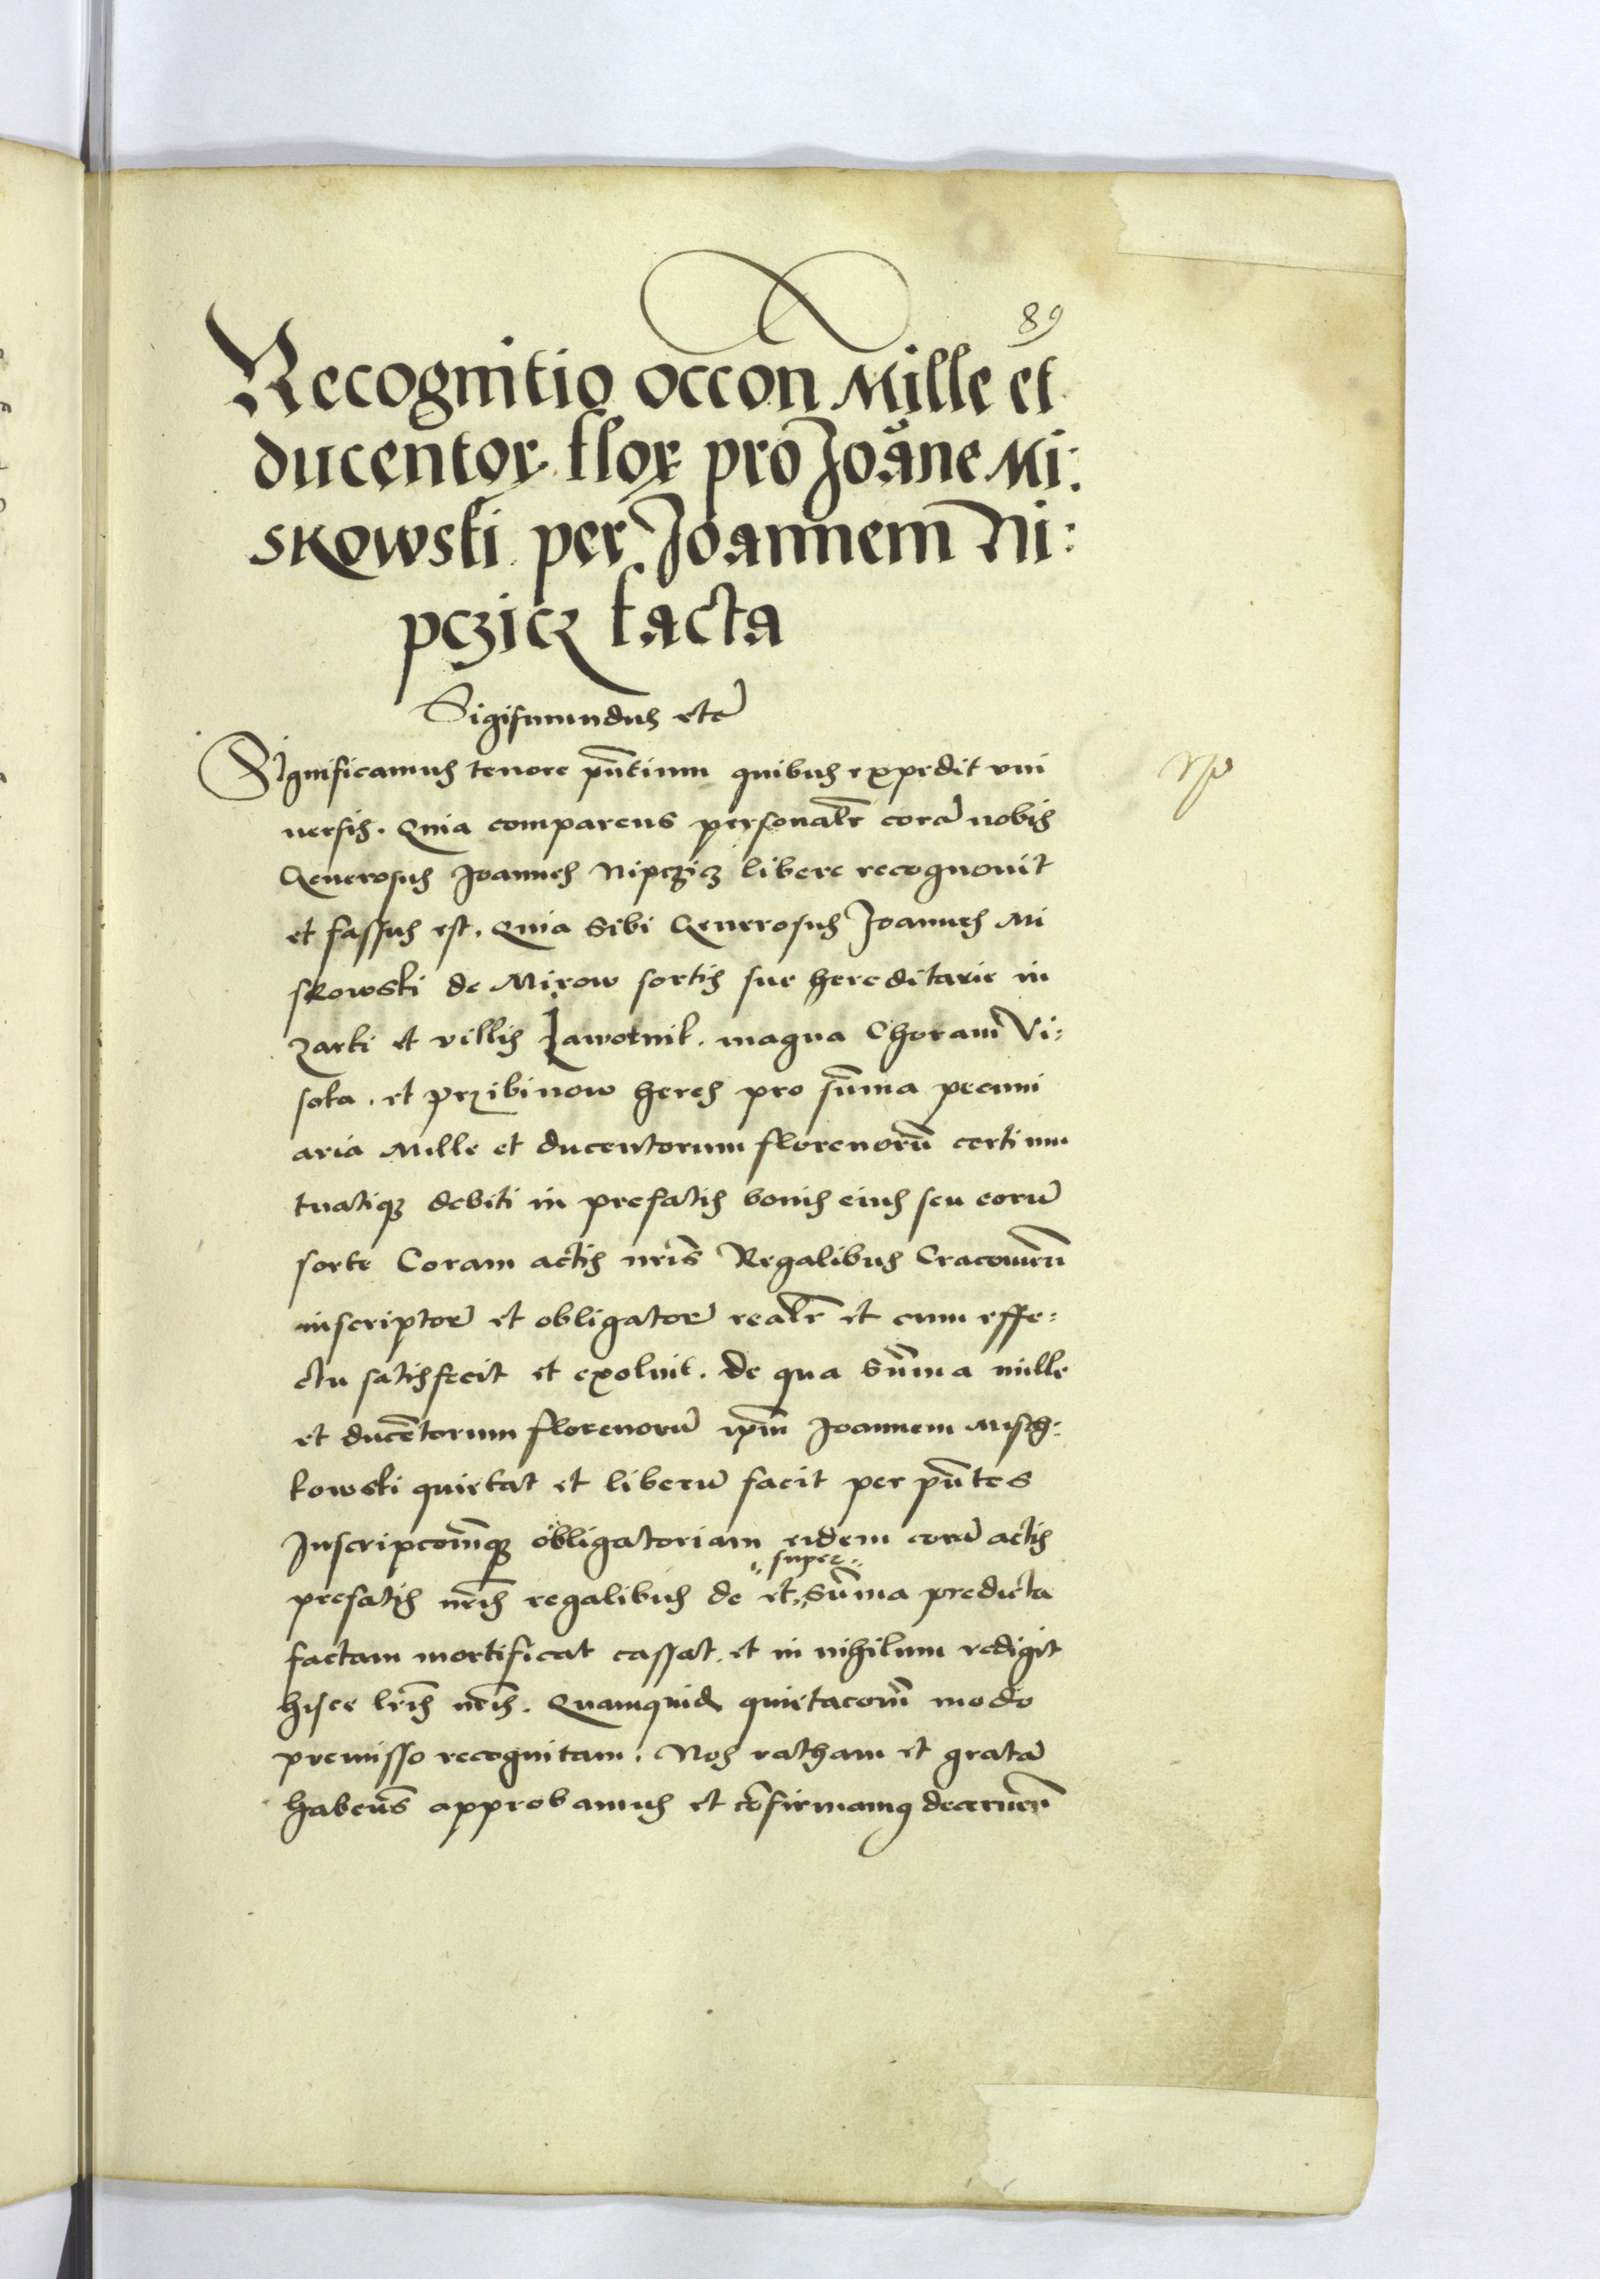 89
Recognitio occon Mille et
ducentor flor pro Joāne Mi:
skowski per Joannem Ni:
pczicz facta
Sigismundus etc
Significamus tenore pn̄tium quibus expedit vni
uersis. Quia comparens personalr̄ corā nobis
Generosus Joannes Nipczicz libere recognouit
et fassus est. Quia sibi Generosus Joannes Mi
skowski de Mirow sortis sue hereditarie in
Zarki et villis Jawornik. magna Choram Vi:
soka. et Przibinow heres pro sum̄a pecuni
aria Mille et ducentorum florenorū certi mu
tuatiq; debiti in prefatis bonis eius seu eorū
sorte Coram actis nr̄is Regalibus Cracouien̄
inscriptor̄ et obligator̄ realr̄ et cum effe:
ctu satisfecit et exoluit. de qua sum̄a mille
et ducētorum florenorū ip̄m Joannem Misch:
kowski quietat et liberū facit per pn̄tes
Inscripcom̄q; obligatoriam eidem corā actis
super
prefatis nr̄is regalibus de et sum̄a predicta
factam mortificat cassat. et in nihilum redigit
hisce lr̄is nr̄is. Quamquid quietacom̄ modo
premisso recognitam. Nos ratham et gratā
haben̄s approbamus et cōfirmamus decernen̄